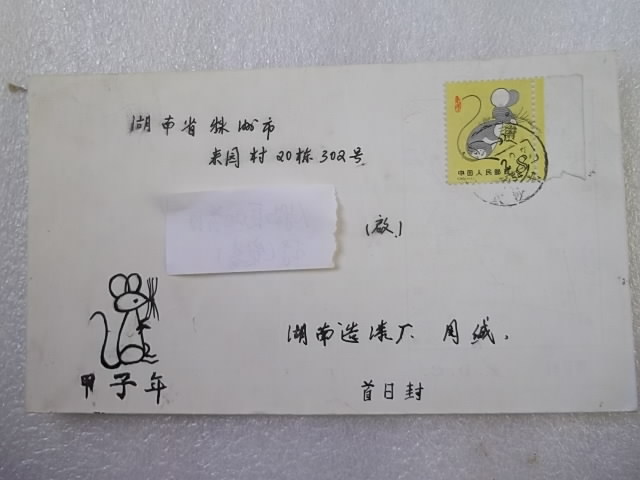 湖南省株洲市
东园村20栋302号
中国人民邮政
(启)
湖南造漆厂 周缄.
甲子年
首日封